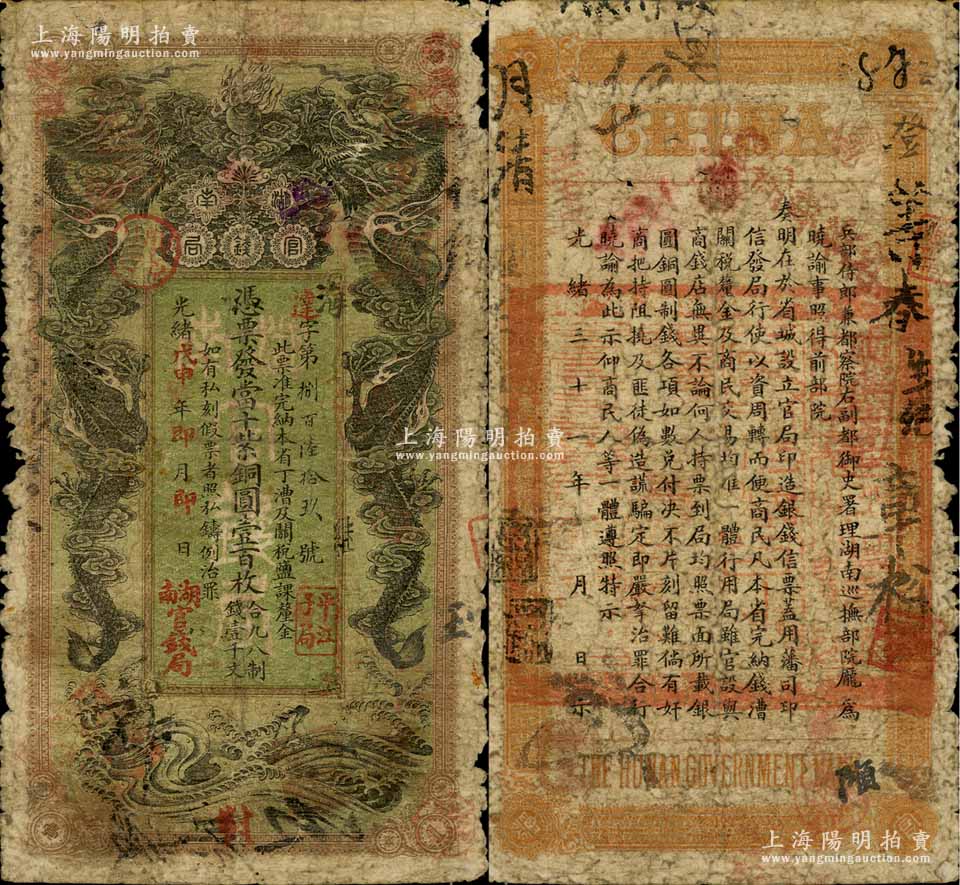 上海陽明拍賣
www.yangmingauction.com
湖南
官錢局
海
達字第捌百陸拾玖號
此票准完納本省丁漕及關稅鹽課釐金
憑票發當十紫銅圓壹百枚
拾九八制
錢壹千文
如有私刻假票者照私鑄例治罪
光緒戊申年即月即日
平江
子局
湖南
官錢局
對
CHINA
兵部侍郎兼都察院右副都御史署理湖南巡撫部院龐為
曉諭事照得前部院
奏明在於省城設立官局印造銀錢信票蓋用藩司印
信發局行使以資周轉而便商民凡本省完納錢漕
關稅釐金及商民交易均准一體行用局雖官設與
商錢店無異不論何人持票到局均照票面所載銀
圓銅圓制錢各項如數兌付決不片刻留難倘有奸
商把持阻撓及匪徒偽造謊騙定即嚴拏治罪合行
曉諭為此示仰商民人等一體遵照特示
光緒三十一年月日示
THE HUNAN GOVERNMENT BANK
月清
春
上海陽明拍賣
www.yangmingauction.com
上海陽明拍賣
www.yangmingauction.com